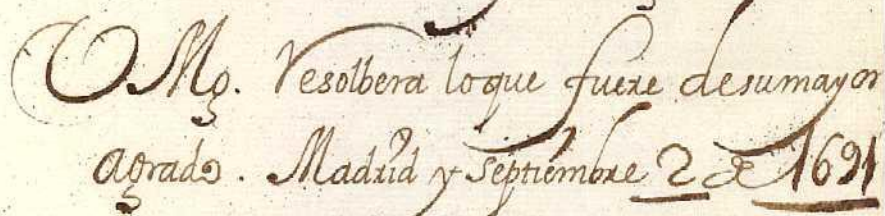 V Mg. resolbera lo que fuere de su mayor
agrado. Madrid y septiembre 2 de 1691